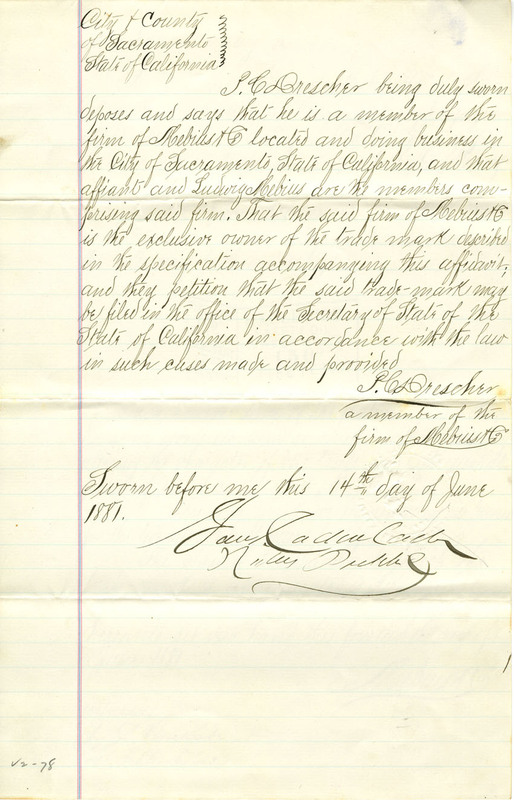 City & County
of Sacramento
State of California
P. C. Drescher being duly sworn
deposes and says that he is a member of the
firm of Mebius & Co located and doing business in
the City of Sacramento, State of California, and that
affiant and Ludwig Mebius are the members com-
prising said firm. That the said firm of Mebius & Co
is the exclusive owner of the trade mark described
in the specification accompanying this affidavit,
and they petition that the said trade-mark may
be filed in the office of the Secretary of State of the
State of California in accordance with the law
in such cases made and provided
P. C. Drescher
a member of the
firm of Mebius & Co
Sworn before me this 14th day of June
1881.
Notary Public
V2-78